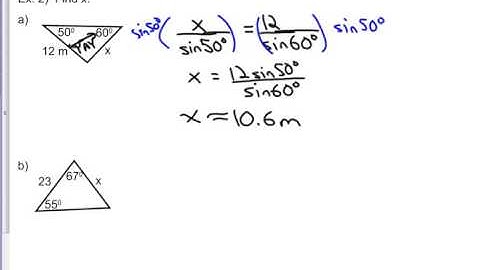 Ex. 2) Find x.
a)
50⁰ 60⁰
12 m x
sin50° ( x / sin50° ) = ( 12 / sin60° ) sin50°
x = 12sin50° / sin60°
x ≈ 10.6m
b)
67⁰
23 x
55⁰